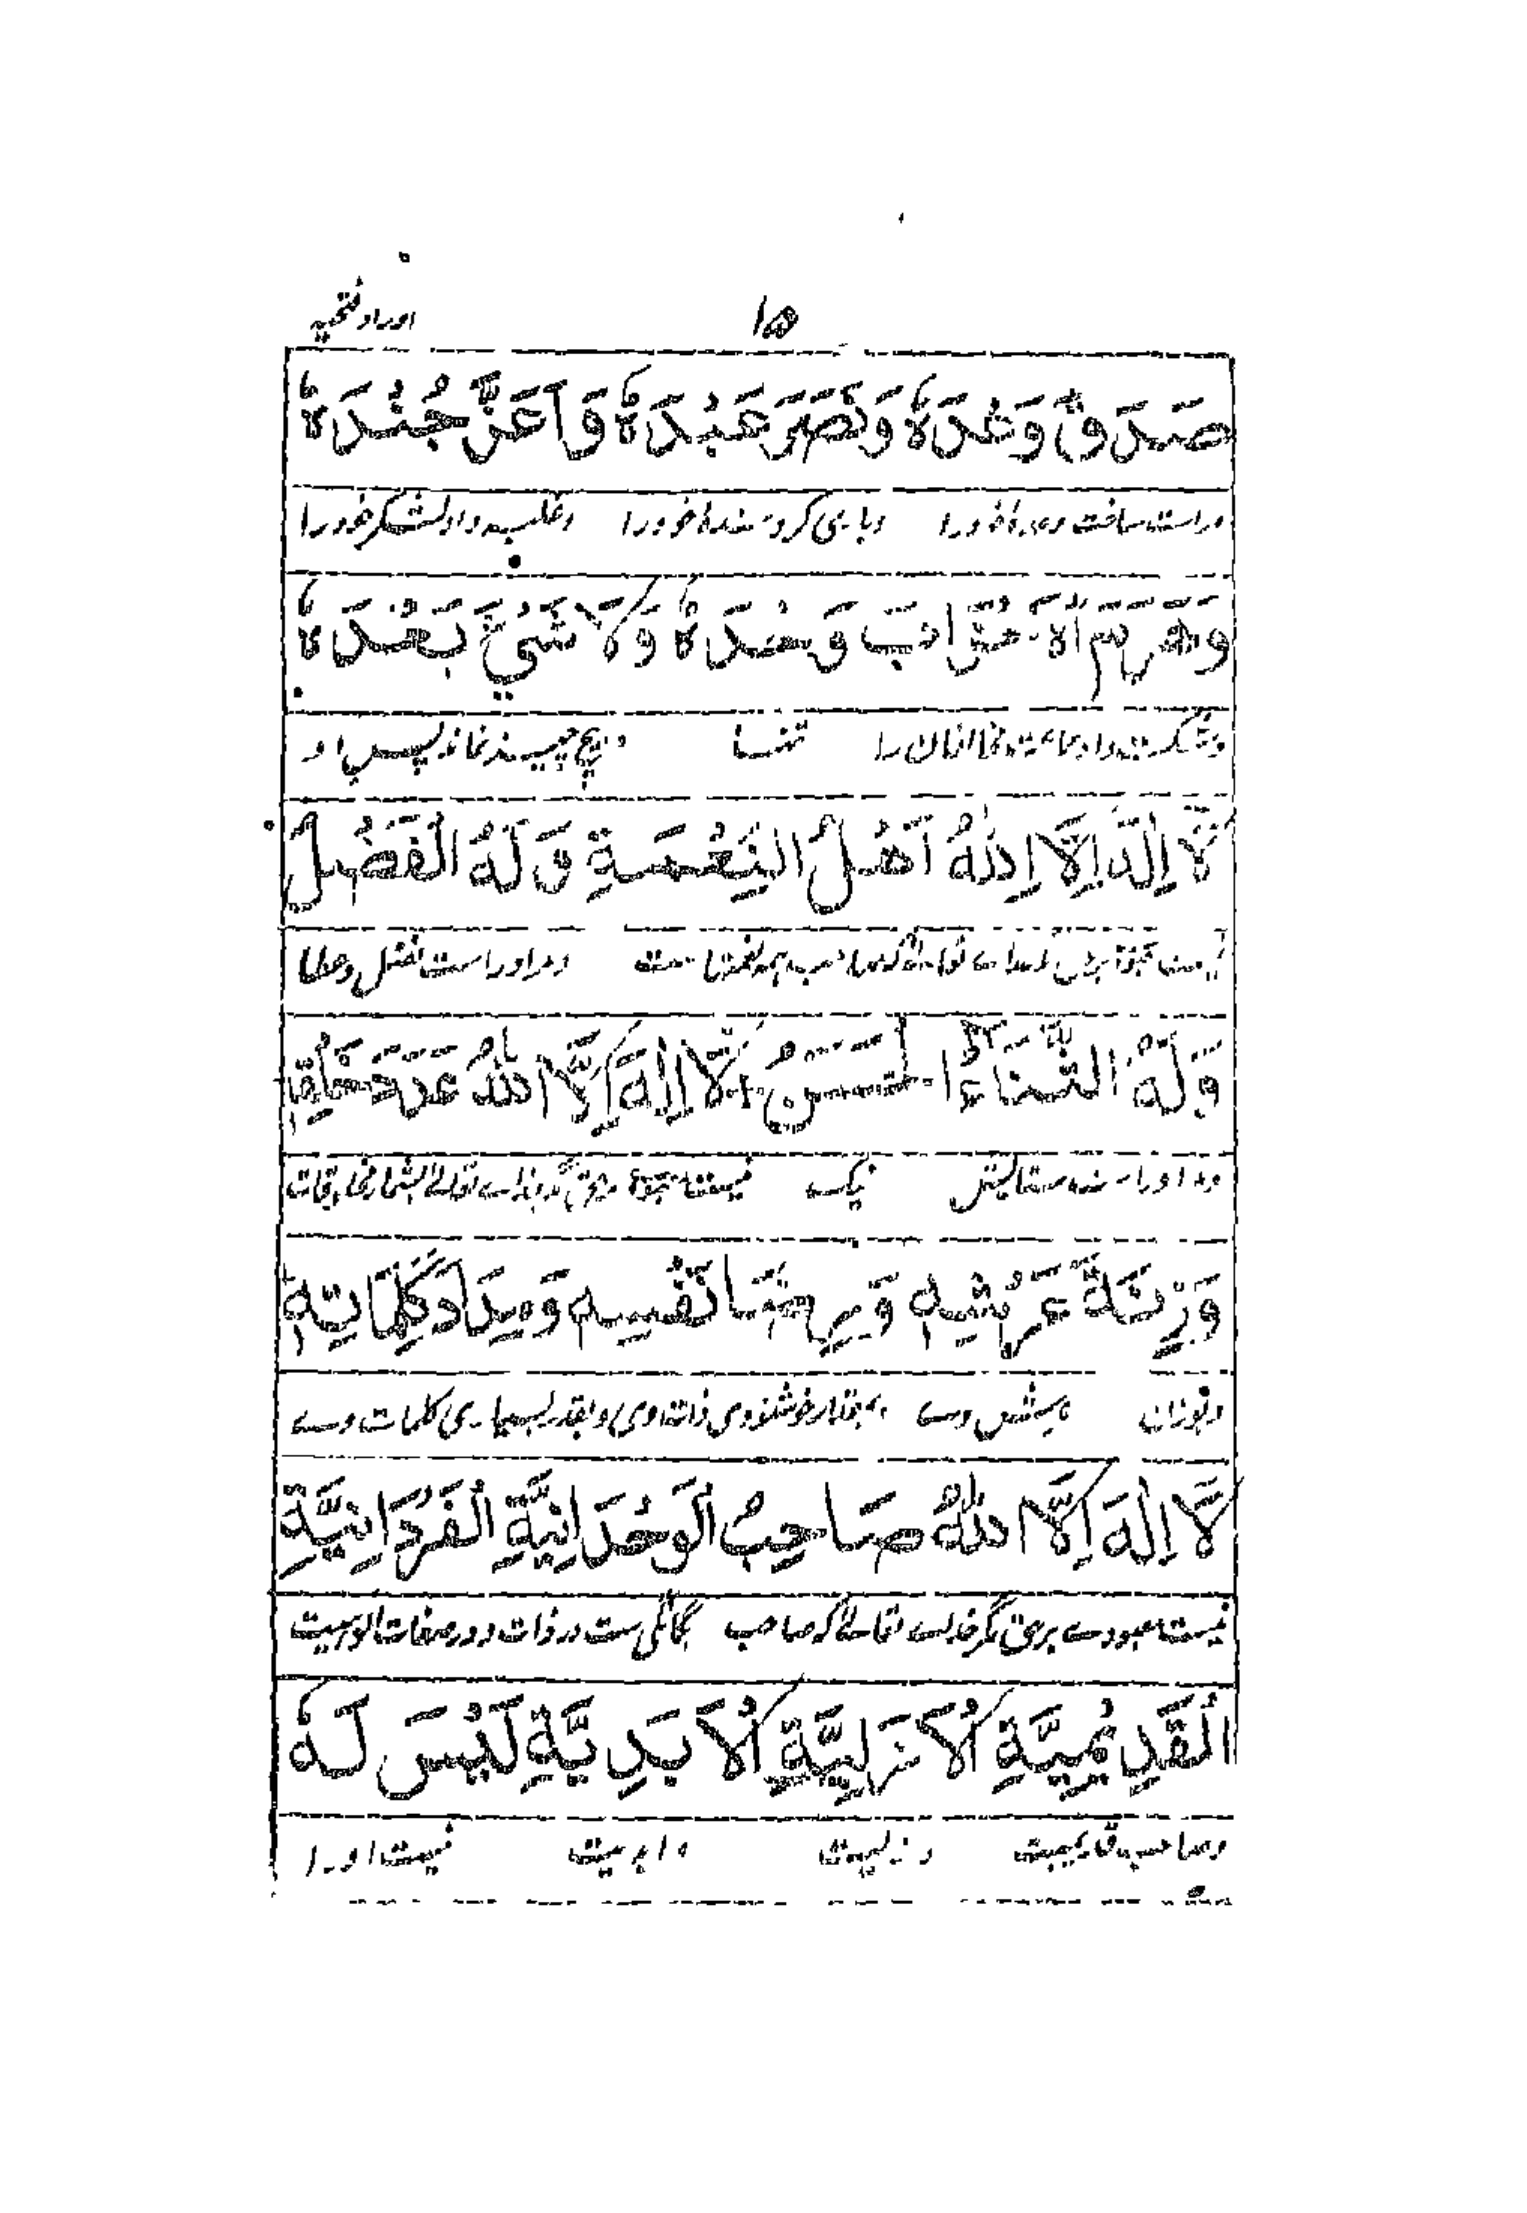 ۱۵ اوراد فتحیه
صَدَقَ وَعْدَهٗ وَنَصَرَ عَبْدَهٗ وَاَعَزَّ جُنْدَهٗ
وراست ساخت وعدهٔ خود را ویاری کرد بندهٔ خود را وغلبه داد لشکر خود را
وَهَزَمَ الْاَحْزَابَ وَحْدَهٗ وَلَا شَیْءَ بَعْدَهٗ
وشکست داد جماعت مخالفان را تنها وهیچ چیز نماند پس او
لَا اِلٰهَ اِلَّا اللّٰهُ اَهْلُ النِّعْمَةِ وَلَهُ الْفَضْلُ
ومر او راست فضل وعطا
وَلَهُ الثَّنَاءُ الْحَسَنُ لَا اِلٰهَ اِلَّا اللّٰهُ عَدَدَ خَلْقِهٖ
ومر اوراست ستایش نیک نیست معبود برحق مگر خدای تعالے بشمار مخلوقات
وَزِنَةَ عَرْشِهٖ وَرِضَا نَفْسِهٖ وَمِدَادَ كَلِمَاتِهٖ
وبوزن عرش وے وبمقدار خوشنودی ذات وی وبقدر بسیاری کلمات وے
لَا اِلٰهَ اِلَّا اللّٰهُ صَاحِبُ الْوَحْدَانِیَّةِ الْفَرْدَانِیَّةِ
نیست معبودے برحق مگر خداے تعالےٰ که صاحب یگانگی ست در ذات ودر صفات الوهیت
الْقَدِیْمِیَّةِ الْاَزَلِیَّةِ الْاَبَدِیَّةِ لَیْسَ لَهٗ
وصاحب قدیمیت وازلیت وابدیت نیست اورا